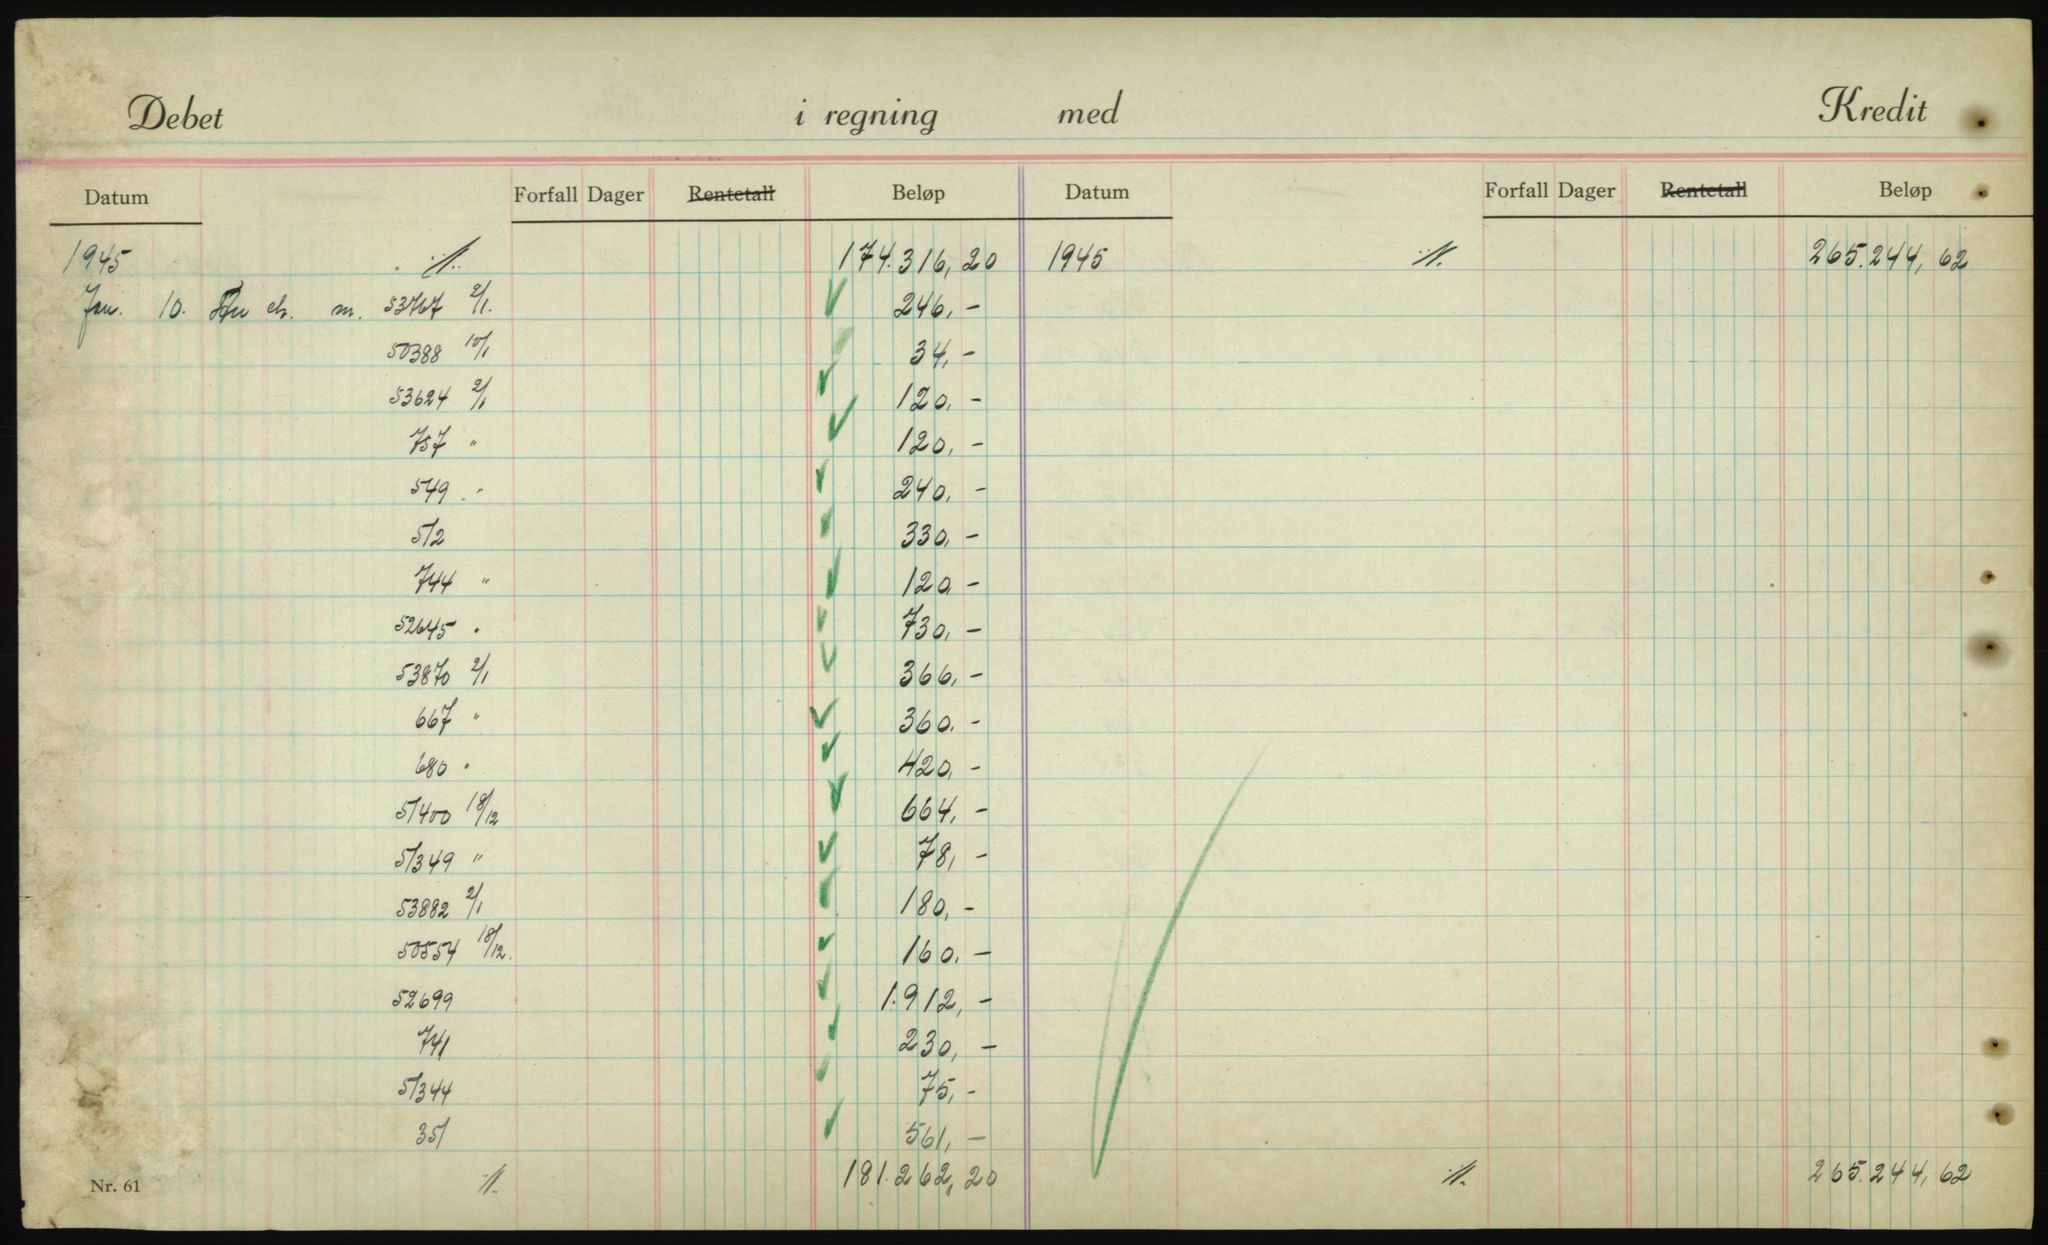 Debet i regning med Kredit
Datum Forfall Dager Rentetall Beløp Datum Forfall Dager Rentetall Beløp
1945 ·/· 174.316,20 1945 ·/· 265.244,62
Jan. 10. ch. m. 53767 2/1. 246,-
50388 10/1 34,-
53624 2/1 120,-
757 " 120,-
549 " 240,-
512 330,-
744 " 120,-
52645 " 730,-
53870 2/1 366,-
667 " 360,-
680 " 420,-
51400 18/12 664,-
51349 " 78,-
53882 2/1 180,-
50554 18/12. 160,-
52699 1.912,-
741 230,-
51344 75,-
351 561,-
Nr. 61 ·/· 181.262,20 ·/· 265.244,62